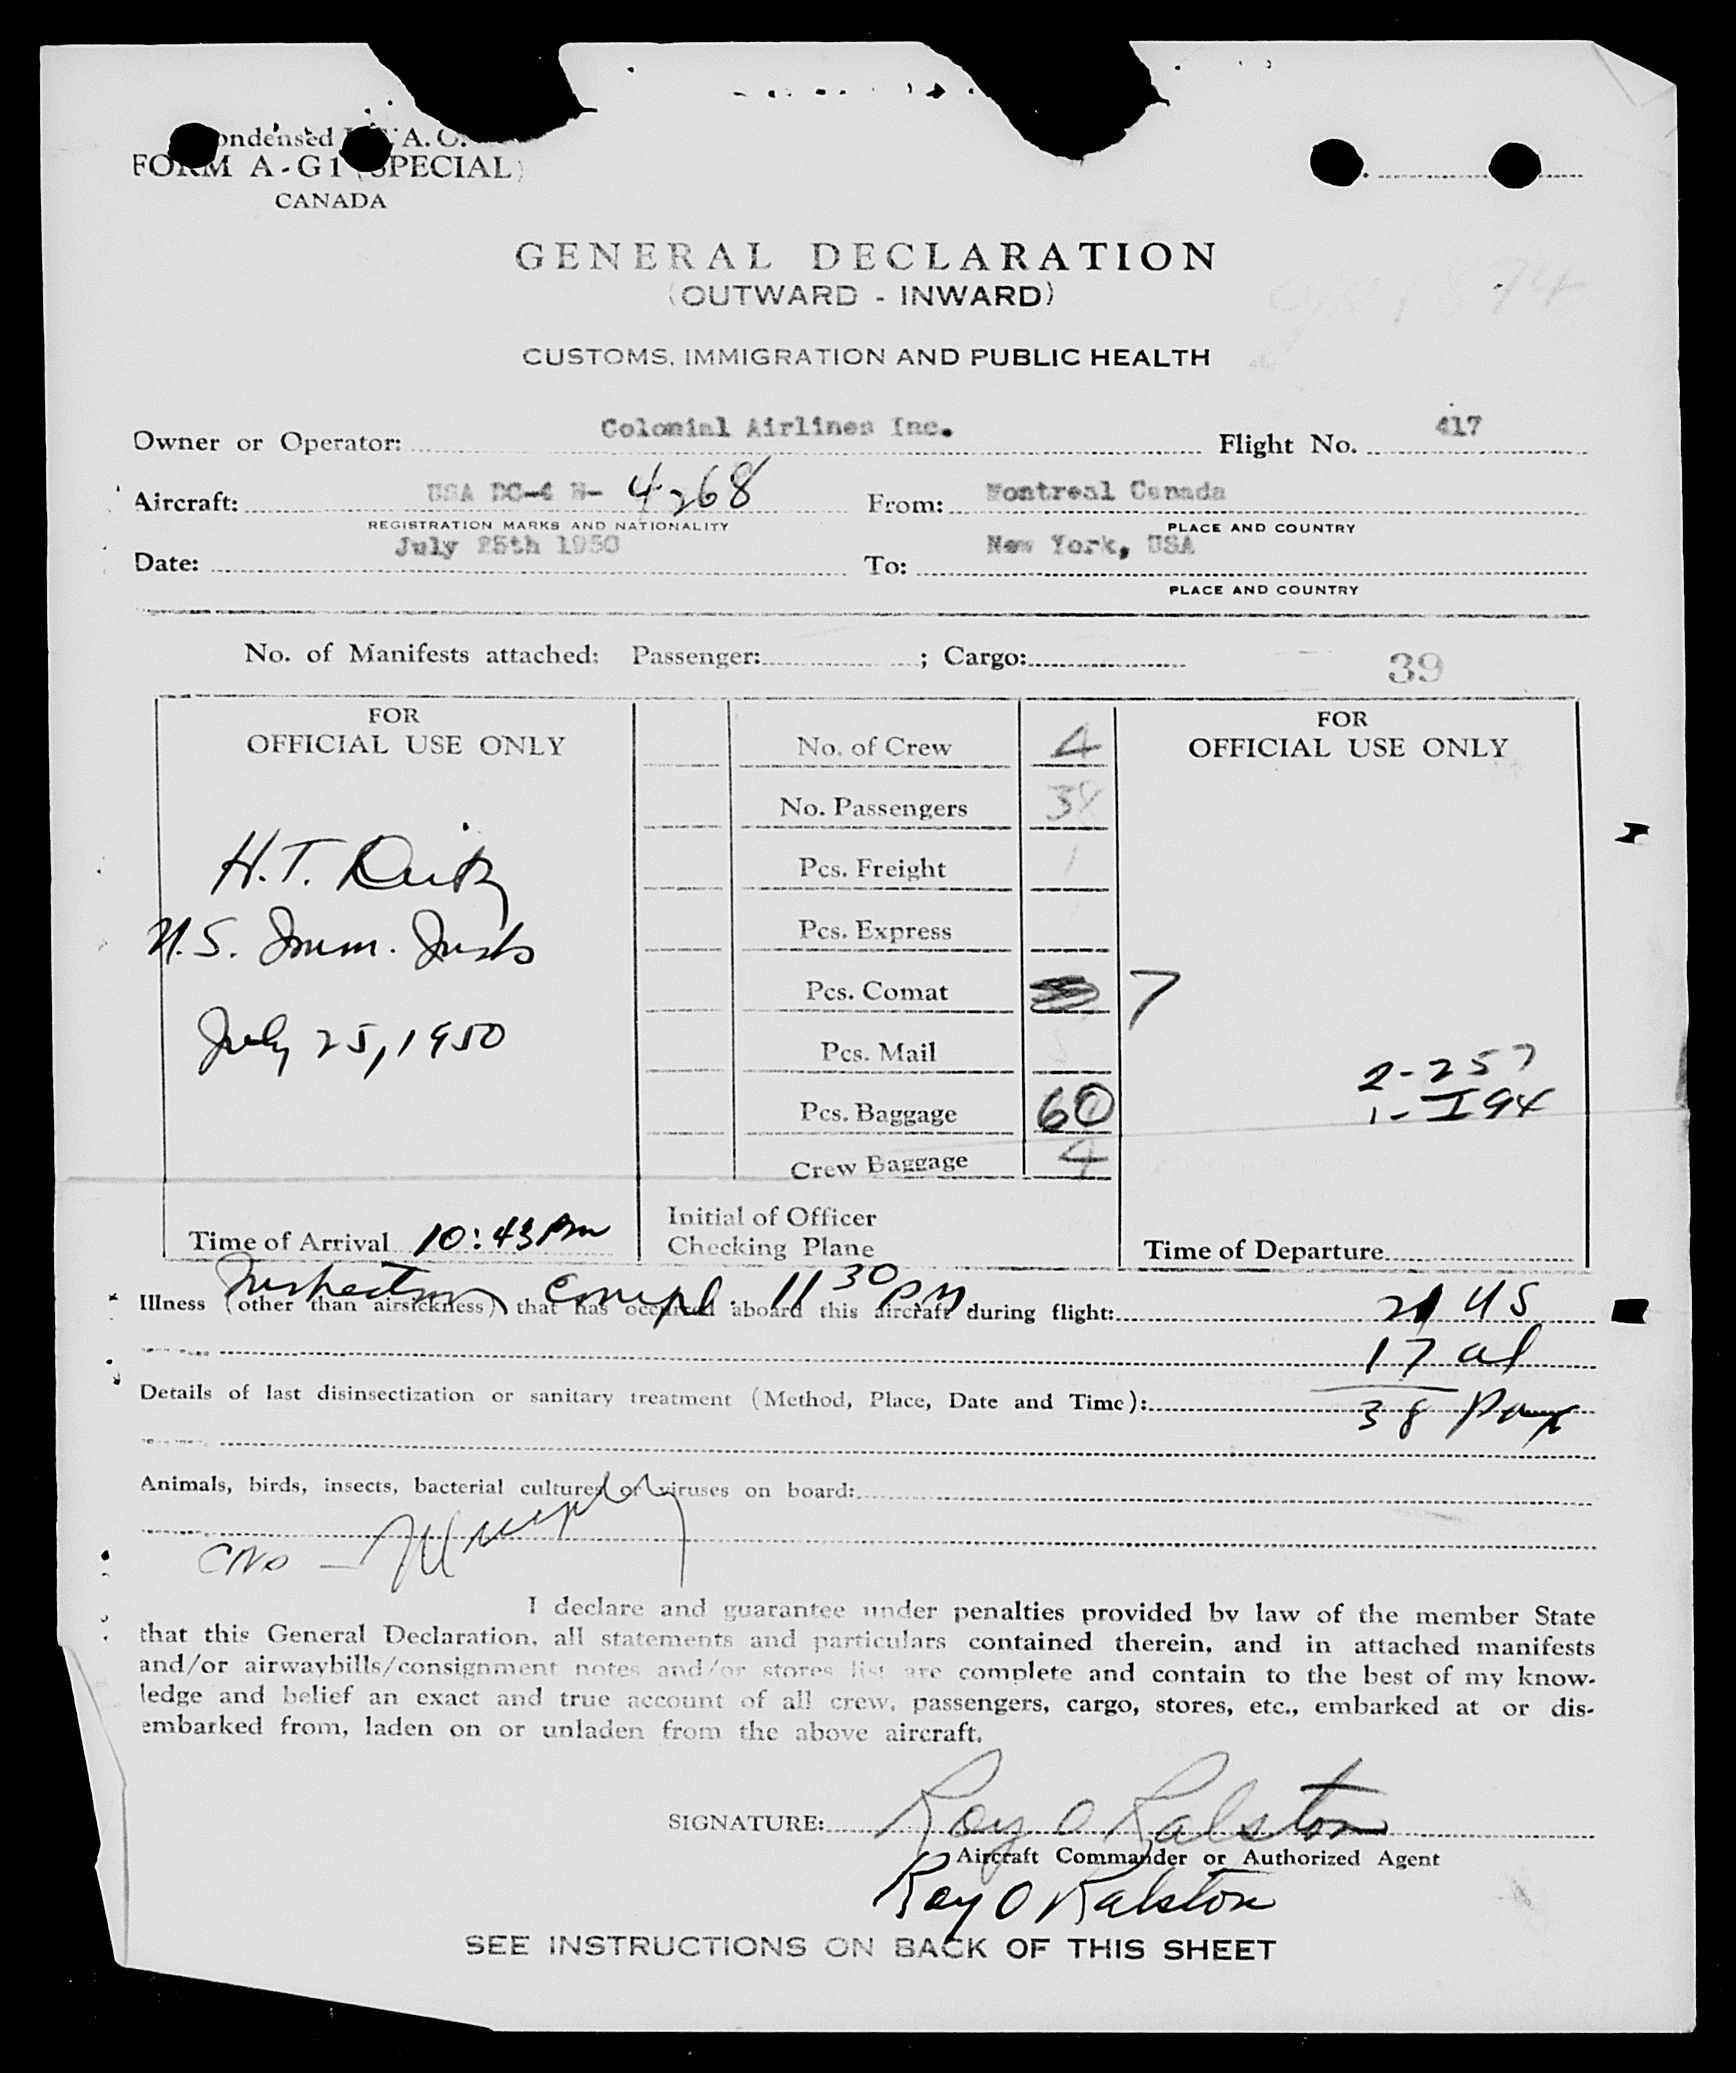 ondensed A.O.
FORM A-G1 (SPECIAL)
CANADA
GENERAL DECLARATION
(OUTWARD - INWARD)
CUSTOMS, IMMIGRATION AND PUBLIC HEALTH
Owner or Operator: Colonial Airlines Inc. Flight No. 417
Aircraft: USA DC-4 N- 4268 From: Montreal Canada
REGISTRATION MARKS AND NATIONALITY PLACE AND COUNTRY
Date: July 25th 1950 To: New York, USA
PLACE AND COUNTRY
No. of Manifests attached: Passenger: ; Cargo:
39
FOR
OFFICIAL USE ONLY
H.T.
U.S. Imm.
July 25, 1950
Time of Arrival 10:43 PM
No. of Crew 4
No. Passengers 38
Pcs. Freight 1
Pcs. Express
Pcs. Comat 7
Pcs. Mail
Pcs. Baggage 60
Crew Baggage 4
Initial of Officer
Checking Plane
FOR
OFFICIAL USE ONLY
2-257
1-I94
Time of Departure
Inspection Compl. 11 30 PM
Illness (other than airsickness) that has occurred aboard this aircraft during flight:
21 US
17 al
Details of last disinsectization or sanitary treatment (Method, Place, Date and Time):
38 Pax
Animals, birds, insects, bacterial cultures or viruses on board:
Murphy
I declare and guarantee under penalties provided by law of the member State
that this General Declaration, all statements and particulars contained therein, and in attached manifests
and/or airwaybills/consignment notes and/or stores list are complete and contain to the best of my know-
ledge and belief an exact and true account of all crew, passengers, cargo, stores, etc., embarked at or dis-
embarked from, laden on or unladen from the above aircraft.
SIGNATURE: Roy O Ralston
Aircraft Commander or Authorized Agent
Roy O Ralston
SEE INSTRUCTIONS ON BACK OF THIS SHEET